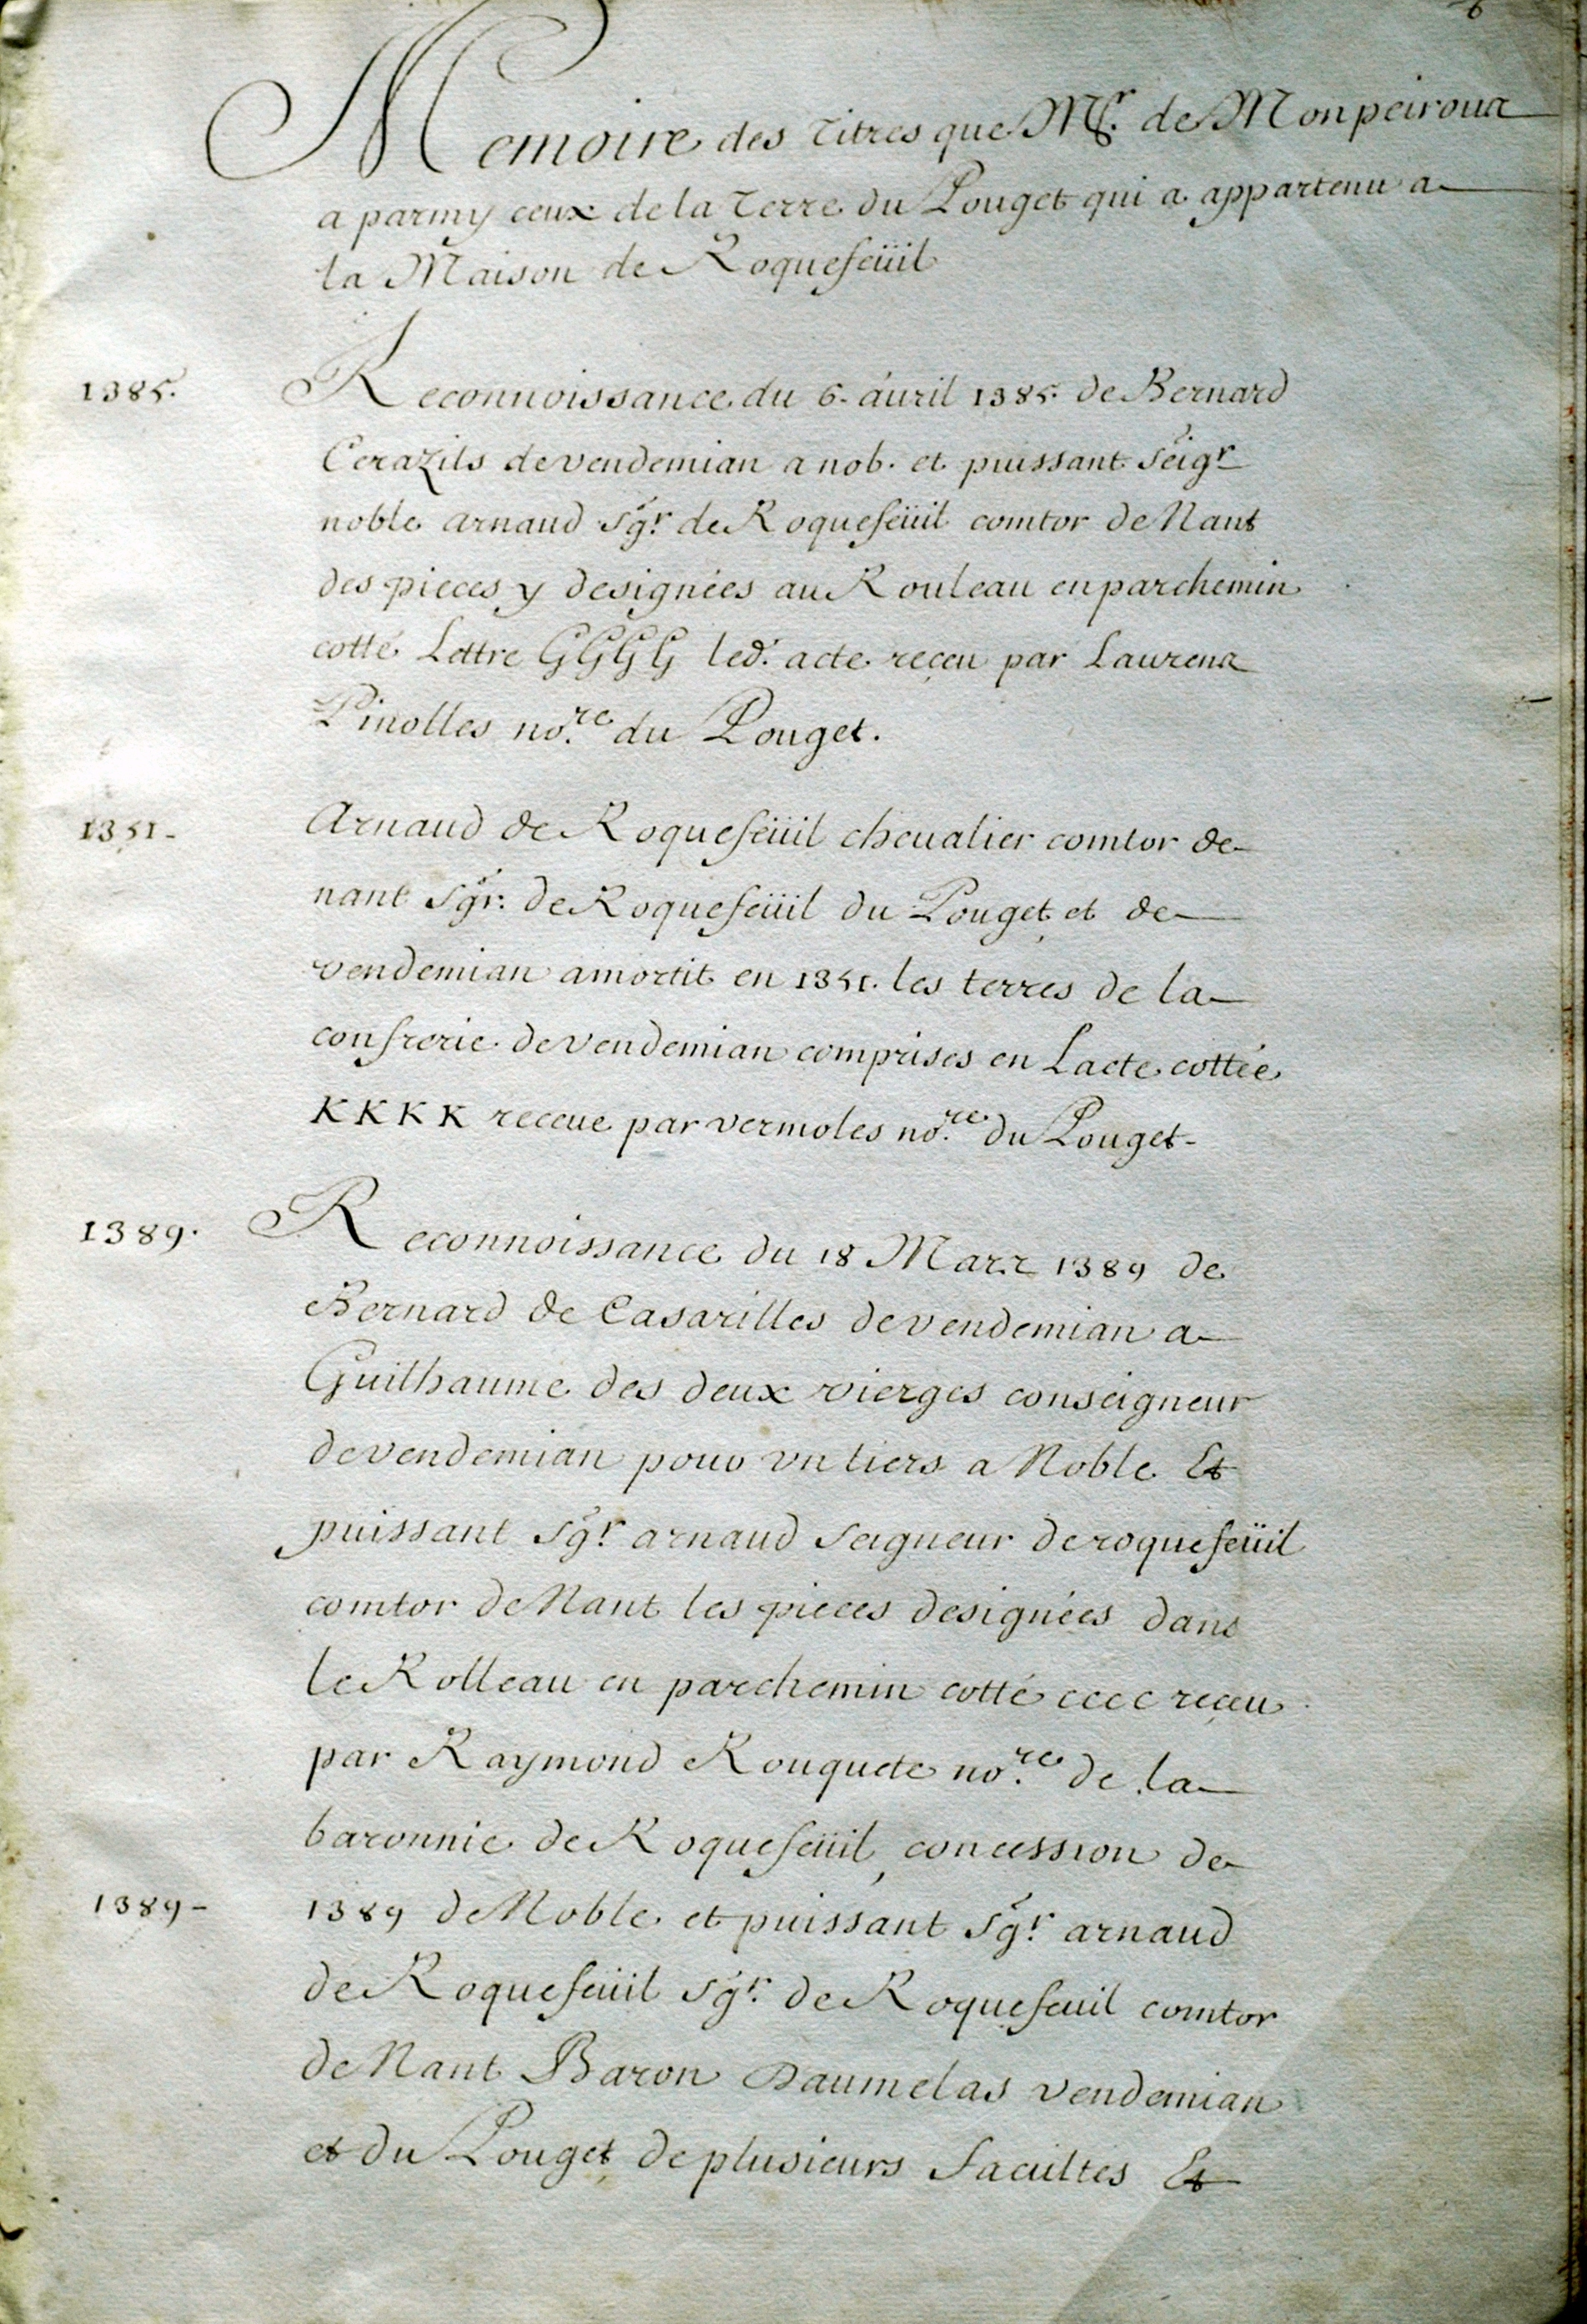 6
Memoire des Titres que Mgr. de Monpeiroux
a parmy ceux de la Terre du Pouget qui a appartenu a
la Maison de Roquefeüil
1385. Reconnoissance du 6. auril 1385. de Bernard
Cerazils de vendemian a nob. et puissant Seigr
noble arnaud Sgr. de Roquefeüil comtor de Nant
des pieces y designées au Rouleau en parchemin
cotté Lettre GGGG led. acte reçeu par Laurens
Pinolles no.re du Pouget.
1351- Arnaud de Roquefeüil cheualier comtor de
nant Sgr. de Roquefeüil du Pouget et de
vendemian amortit en 1351. les terres de la
confrerie de vendemian comprises en Lacte cottée
KKKK receue par vermoles no.re du Pouget-
1389. Reconnoissance du 18 Marz 1389 de
Bernard de Casarilles de vendemian a
Guilhaume des deux vierges conseigneur
de vendemian pour vn tiers a Noble Et
puissant Sgr. arnaud Seigneur de roquefeüil
comtor de Nant les pieces designées dans
le Rolleau en parchemin cotté cccc reçeu
par Raymond Rouquete no.re de la
baronnie de Roquefeüil, concession de
1389- 1389 de Noble et puissant Sgr. arnaud
de Roquefeüil Sgr. de Roquefeuil comtor
de Nant Baron Daumelas vendemian
et du Pouget de plusieurs facultes Et